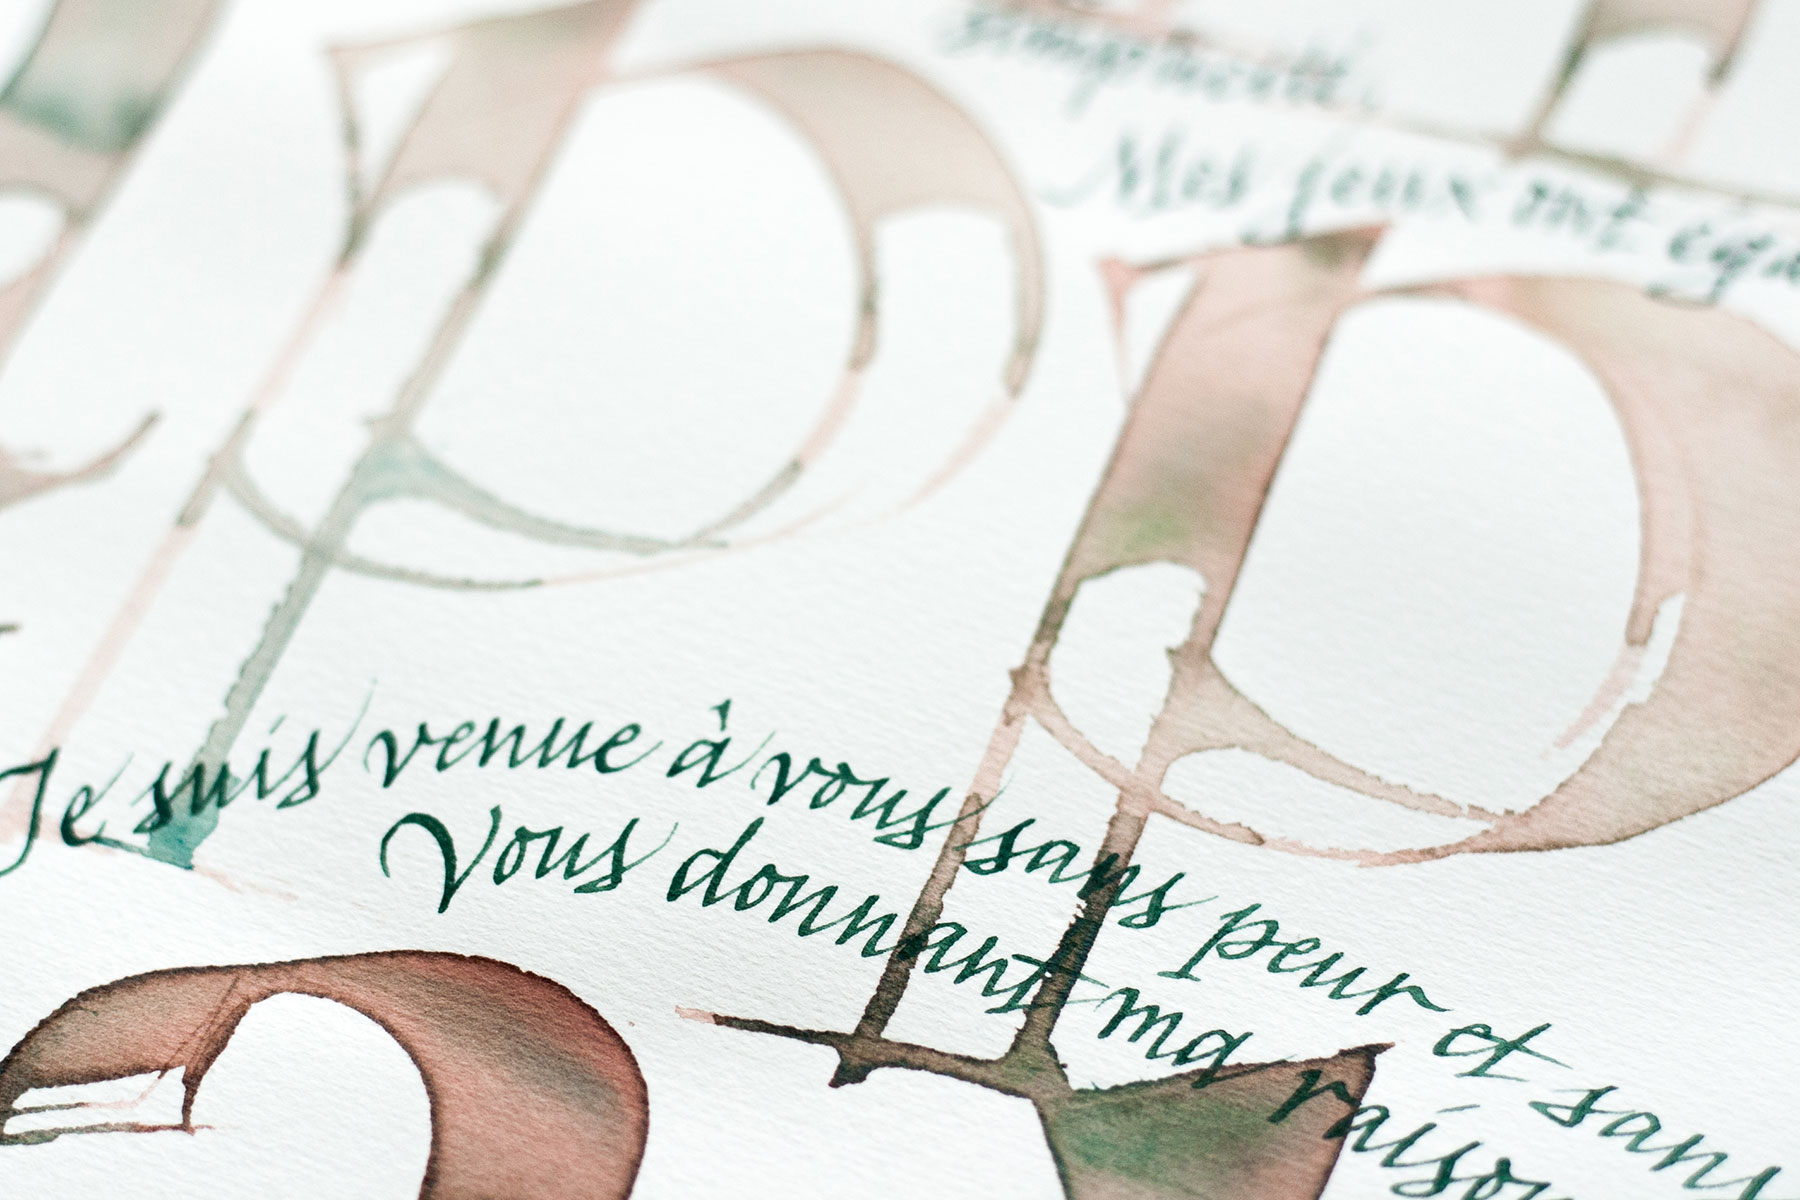 simplicité,
Mes jeux ont
pp
Je suis venue à vous sans peur et sans
Vous donnant ma raison